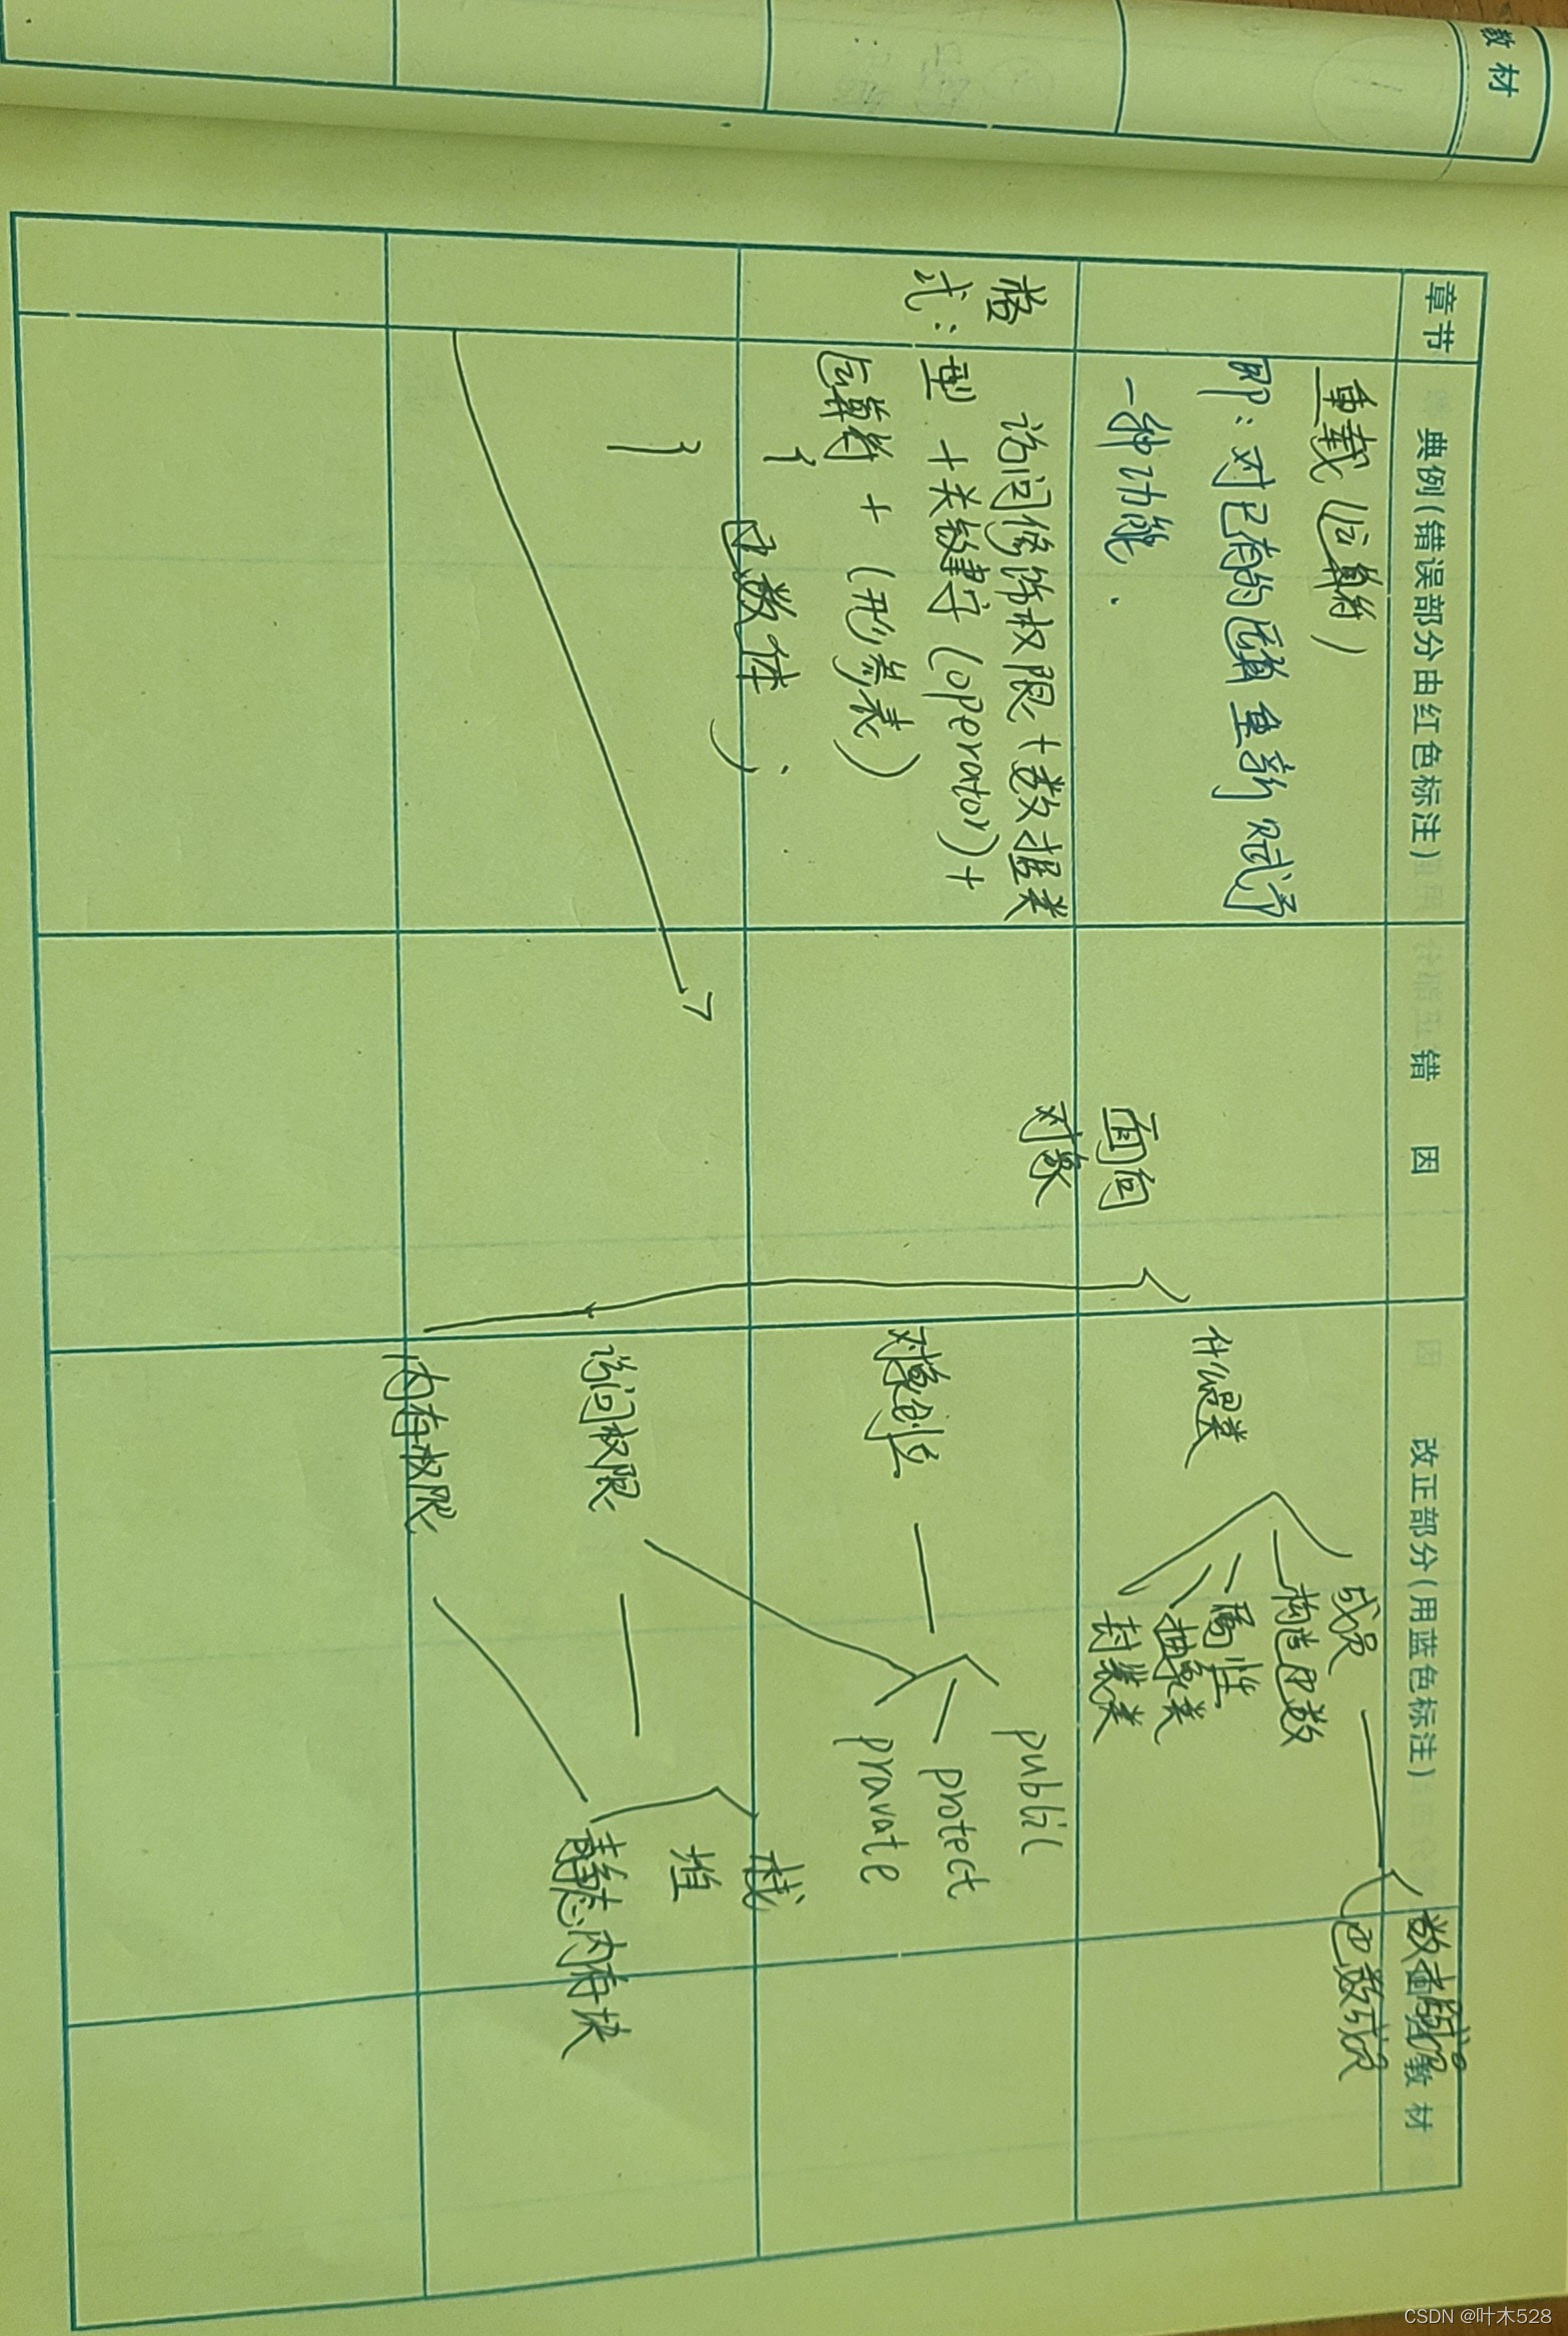 教材
章节
典例(错误部分由红色标注)
错因
改正部分(用蓝色标注)
教材
重载(运算符)
即:对已有的运算重新赋予
一种功能.
格
式:
访问修饰权限+数据类
型+关键字(operator)+
运算符+(形参表)
{
函数体;
}
面向
对象
什么是类
成员
数据成员
函数成员
构造函数
属性
抽象类
封装类
对象创立
public
protect
pravate
访问权限
栈
堆
静态内存块
内存权限
CSDN @叶木528